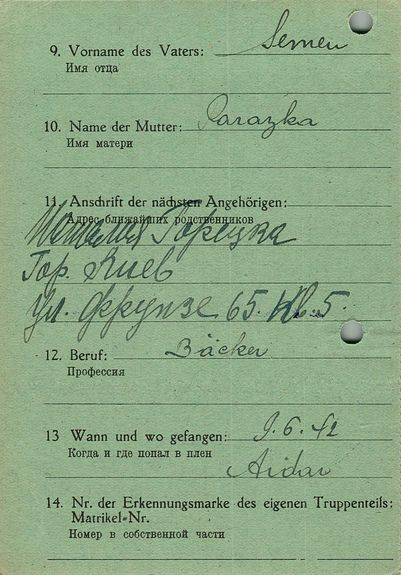 9. Vorname des Vaters: Semen
Имя отца
10. Name der Mutter: Parazka
Имя матери
11. Anschrift der nächsten Angehörigen:
Адрес ближайших родственников
Горецка
Гор. Киев
Ул. Фрунзе 65. Кв. 5.
12. Beruf: Bäcker
Профессия
13 Wann und wo gefangen: 9.6.42
Когда и где попал в плен
Aidar
14. Nr. der Erkennungsmarke des eigenen Truppenteils:
Matrikel-Nr.
Номер в собственной части